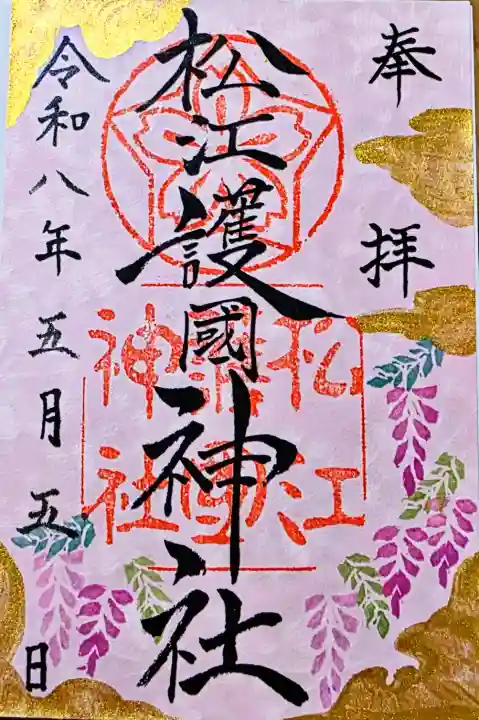 奉拝
松江護國神社
松江
護國
神社
令和八年五月五日